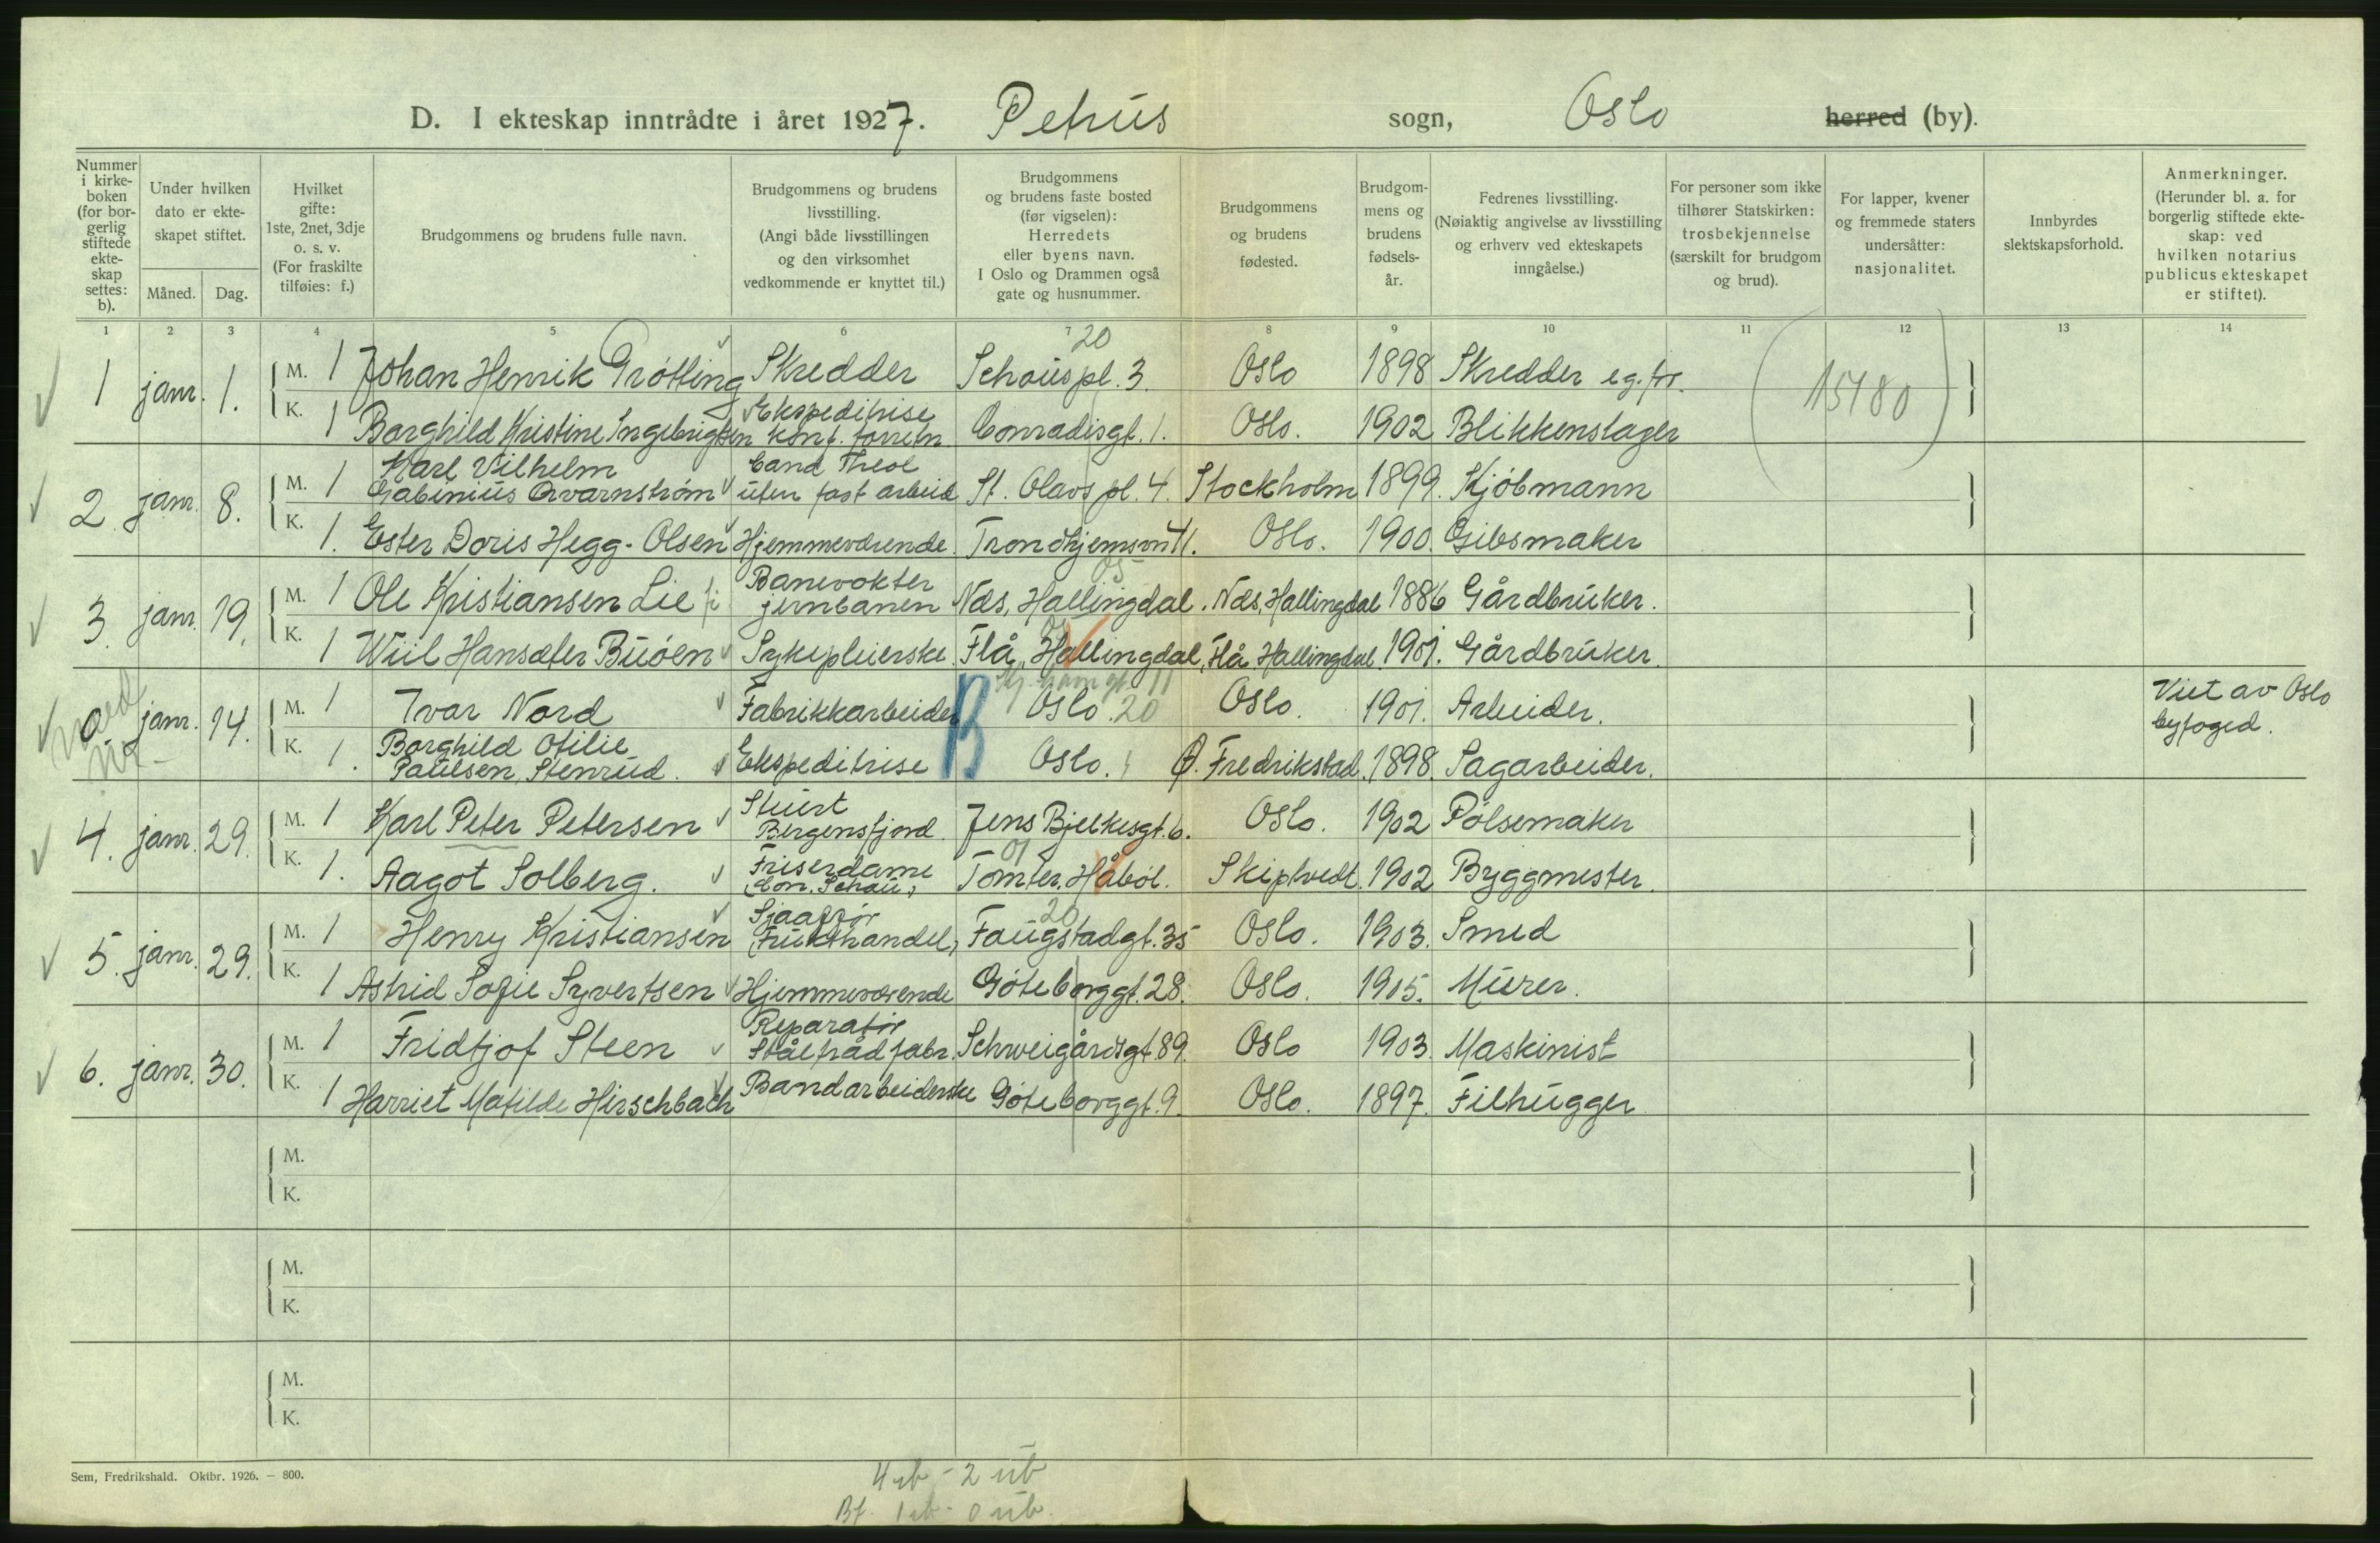 D. I ekteskap inntrådte i året 1927. Petrus sogn, Oslo herred (by).
Nummer i kirke-boken (for bor-gerlig stiftede ekte-skap settes: b).
Under hvilken dato er ekte-skapet stiftet.
Måned. Dag.
Hvilket gifte: 1ste, 2net, 3dje o. s. v. (For fraskilte tilføies: f.)
Brudgommens og brudens fulle navn.
Brudgommens og brudens livsstilling. (Angi både livsstillingen og den virksomhet vedkommende er knyttet til.)
Brudgommens og brudens faste bosted (før vigselen): Herredets eller byens navn. I Oslo og Drammen også gate og husnummer.
Brudgommens og brudens fødested.
Brudgom-mens og brudens fødsels-år.
Fedrenes livsstilling. (Nøiaktig angivelse av livsstilling og erhverv ved ekteskapets inngåelse.)
For personer som ikke tilhører Statskirken: trosbekjennelse (særskilt for brudgom og brud).
For lapper, kvener og fremmede staters undersåtter: nasjonalitet.
Innbyrdes slektskapsforhold.
Anmerkninger. (Herunder bl. a. for borgerlig stiftede ekte-skap: ved hvilken notarius publicus ekteskapet er stiftet).
1 2 3 4 5 6 7 8 9 10 11 12 13 14
20
1 janr. 1. M. 1 Johan Henrik Grötting Skredder Schous pl. 3. Oslo 1898 Skredder eg. for. (15480)
K. 1 Borghild Kristine Ingebrigtsen Ekspeditrise konf. forretn Conradisgt. 1. Oslo. 1902 Blikkenslager
2 janr. 8. M. 1 Karl Vilhelm Gabinius Qvarnström Cand Theol uten fast arbeid St. Olavs pl. 4. Stockholm 1899. Kjöbmann
K. 1. Ester Doris Hegg-Olsen Hjemmeværende. Trondhjemsvn 41. Oslo. 1900. Gibsmaker
3. janr. 19. M. 1 Ole Kristiansen Lie Banevokter jernbanen Næs, Hallingdal. Næs, Hallingdal 1886 Gårdbruker.
K. 1 Wiil Hansdter Buöen Sykepleierske. Flå, Hallingdal, Flå Hallingdal 1901. Gårdbruker.
0. janr. 14. M. 1 Ivar Nord Fabrikkarbeider B Oslo. 20 Oslo. 1901. Arbeider. Viet av Oslo byfoged.
K. 1. Borghild Otilie Paulsen Stenrud. Ekspeditrise Oslo. Ø. Fredrikstad. 1898. Sagarbeider.
4. janr. 29. M. 1 Karl Peter Petersen Stuert Bergensfjord. Jens Bjelkesgt. 6. Oslo. 1902 Pölsemaker
K. 1. Aagot Solberg. Friserdame (don. Schou) Tomter. Håböl. Skiptvedt. 1902 Byggmester.
5. janr. 29. M. 1 Henry Kristiansen Sjaafför (Frukthandel) Faugstadgt. 35 Oslo. 1903. Smed
K. 1 Astrid Sofie Syvertsen Hjemmeværende Göteborggt. 28. Oslo. 1905. Murer.
6. janr. 30. M. 1 Fridtjof Steen Reparatör Ståltrådfabr. Schweigårdsgt. 89. Oslo 1903. Maskinist
K. 1 Harriet Matilde Hirschbach Bandarbeiderske Göteborggt. 9. Oslo. 1897. Filhugger
M.
K.
M.
K.
M.
K.
Sem, Fredrikshald. Oktbr. 1926. — 800.
4 ub - 2 üb
Bf. 1 ub - 0 üb.